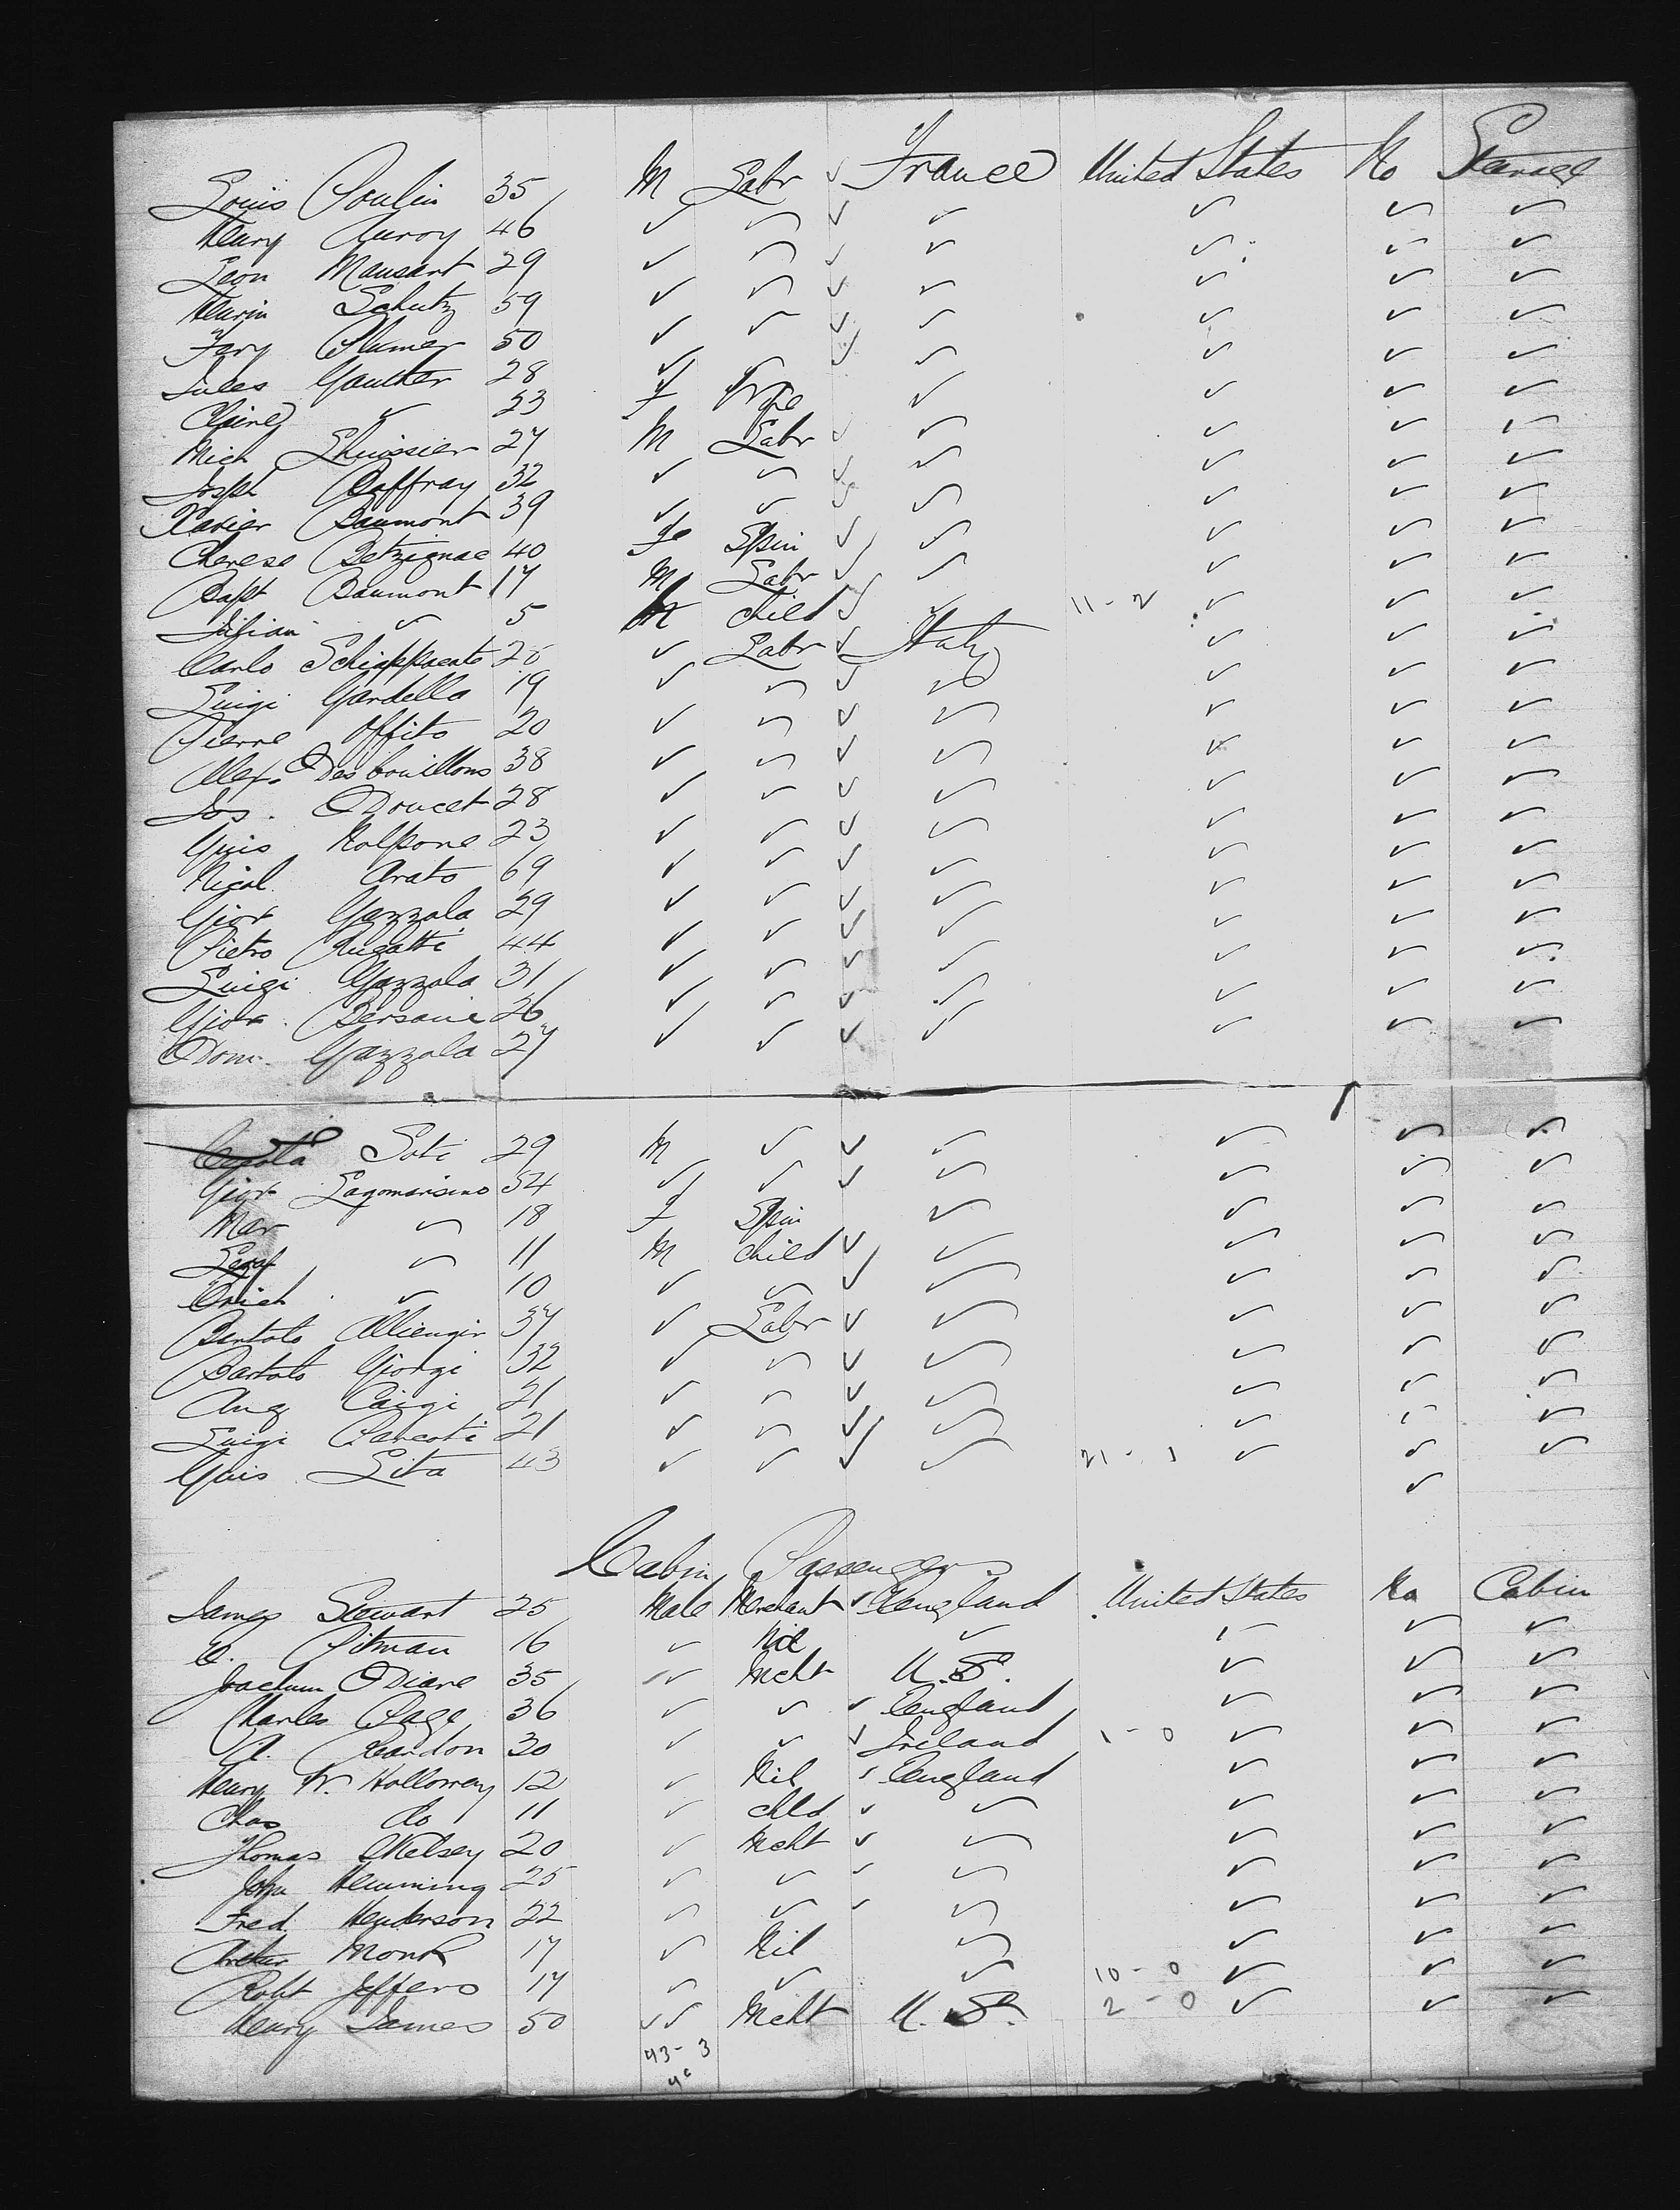 Louis Poulin 35 M Labr ✓ France United States No Steerage
Henry Auroy 46 ✓ ✓ ✓ ✓ ✓ ✓ ✓
Leon Mansant 29 ✓ ✓ ✓ ✓ ✓ ✓ ✓
Schutz 59 ✓ ✓ ✓ ✓ ✓ ✓ ✓
Fery Plumer 50 ✓ ✓ ✓ ✓ ✓ ✓ ✓
Jules Gauther 28 ✓ ✓ ✓ ✓ ✓ ✓ ✓
Claire ✓ 23 F Wife ✓ ✓ ✓ ✓
Mich Lhuissier 27 M Labr ✓ ✓ ✓ ✓ ✓
Josph Caffray 32 ✓ ✓ ✓ ✓ ✓ ✓ ✓
Xavier Baumont 39 ✓ ✓ ✓ ✓ ✓ ✓ ✓
Cherese Betzignac 40 Fe Spin ✓ ✓ ✓ ✓ ✓
Bapt Baumont 17 M Labr ✓ ✓ ✓ ✓ ✓
✓ 5 M child ✓ ✓ 11-2 ✓ ✓ ✓
Carlo Schiappacato 28 ✓ Labr ✓ Italy ✓ ✓ ✓
Luigi Gardella 19 ✓ ✓ ✓ ✓ ✓ ✓ ✓
Pierre Offito 20 ✓ ✓ ✓ ✓ ✓ ✓ ✓
Alexr Desbouillons 38 ✓ ✓ ✓ ✓ ✓ ✓ ✓
Jos. Doucet 28 ✓ ✓ ✓ ✓ ✓ ✓ ✓
Guis Kolpone 23 ✓ ✓ ✓ ✓ ✓ ✓ ✓
Nicol. Arato 69 ✓ ✓ ✓ ✓ ✓ ✓ ✓
Gior Gazzola 29 ✓ ✓ ✓ ✓ ✓ ✓ ✓
Pietro Rugatti 44 ✓ ✓ ✓ ✓ ✓ ✓ ✓
Luigi Gazzola 31 ✓ ✓ ✓ ✓ ✓ ✓ ✓
Gior. Bersani 26 ✓ ✓ ✓ ✓ ✓ ✓ ✓
Dom. Gazzola 27 ✓ ✓ ✓ ✓ ✓ ✓ ✓
Soti 29 M ✓ ✓ ✓ ✓ ✓ ✓
Gior Lagomarsino 54 ✓ ✓ ✓ ✓ ✓ ✓ ✓
Mar ✓ 18 F Spin ✓ ✓ ✓ ✓
✓ 11 M child ✓ ✓ ✓ ✓ ✓
✓ 10 ✓ ✓ ✓ ✓ ✓ ✓ ✓
Bartolo 37 ✓ Labr ✓ ✓ ✓ ✓ ✓
Bartolo Giorgi 32 ✓ ✓ ✓ ✓ ✓ ✓ ✓
Ang Caigi 21 ✓ ✓ ✓ ✓ ✓ ✓ ✓
Luigi 21 ✓ ✓ ✓ ✓ ✓ ✓ ✓
Guis Lita 43 ✓ ✓ ✓ ✓ 21-1 ✓ ✓ ✓
Cabin Passengers
James Stewart 25 Male Merchant ✓ England United States No Cabin
C. Pitman 16 ✓ Nil ✓ ✓ ✓ ✓
Joachim Diare 35 ✓ Mcht U.S. ✓ ✓ ✓
Charles Page 36 ✓ ✓ ✓ England ✓ ✓ ✓
A. Reardon 30 ✓ ✓ ✓ Ireland 1-0 ✓ ✓ ✓
Henry W. Holloway 12 ✓ Nil ✓ England ✓ ✓ ✓
Chas do 11 ✓ chld ✓ ✓ ✓ ✓ ✓
Thomas Kelsey 20 ✓ Mcht ✓ ✓ ✓ ✓ ✓
John Hemming 25 ✓ ✓ ✓ ✓ ✓ ✓ ✓
Fred. Henderson 22 ✓ ✓ ✓ ✓ ✓ ✓ ✓
Arthur Monk 17 ✓ Nil ✓ ✓ ✓ ✓
Robt Jeffers 17 ✓ ✓ ✓ 10-0 ✓ ✓ ✓
Henry James 50 ✓✓ Mcht U.S. 2-0 ✓ ✓ ✓
43-3